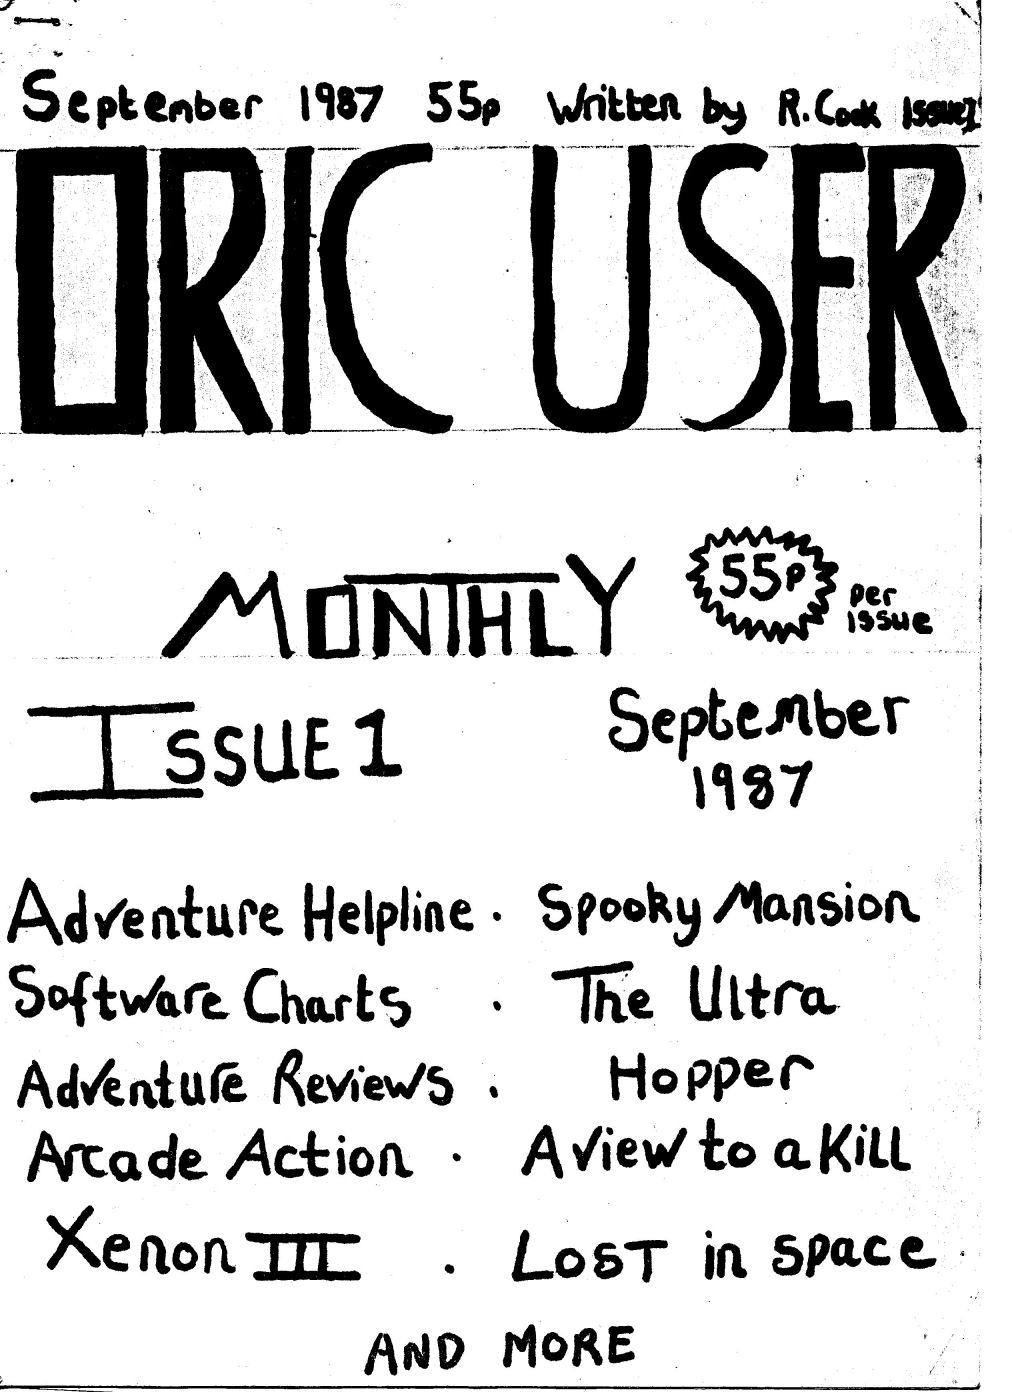 September 1987 55p Written by R.Cook Issue1
ORIC USER
MONTHLY
55p
per
issue
ISSUE 1
September
1987
Adventure Helpline . Spooky Mansion
Software Charts . The Ultra
Adventure Reviews . Hopper
Arcade Action . A View to a Kill
Xenon III . LOST in space
AND MORE